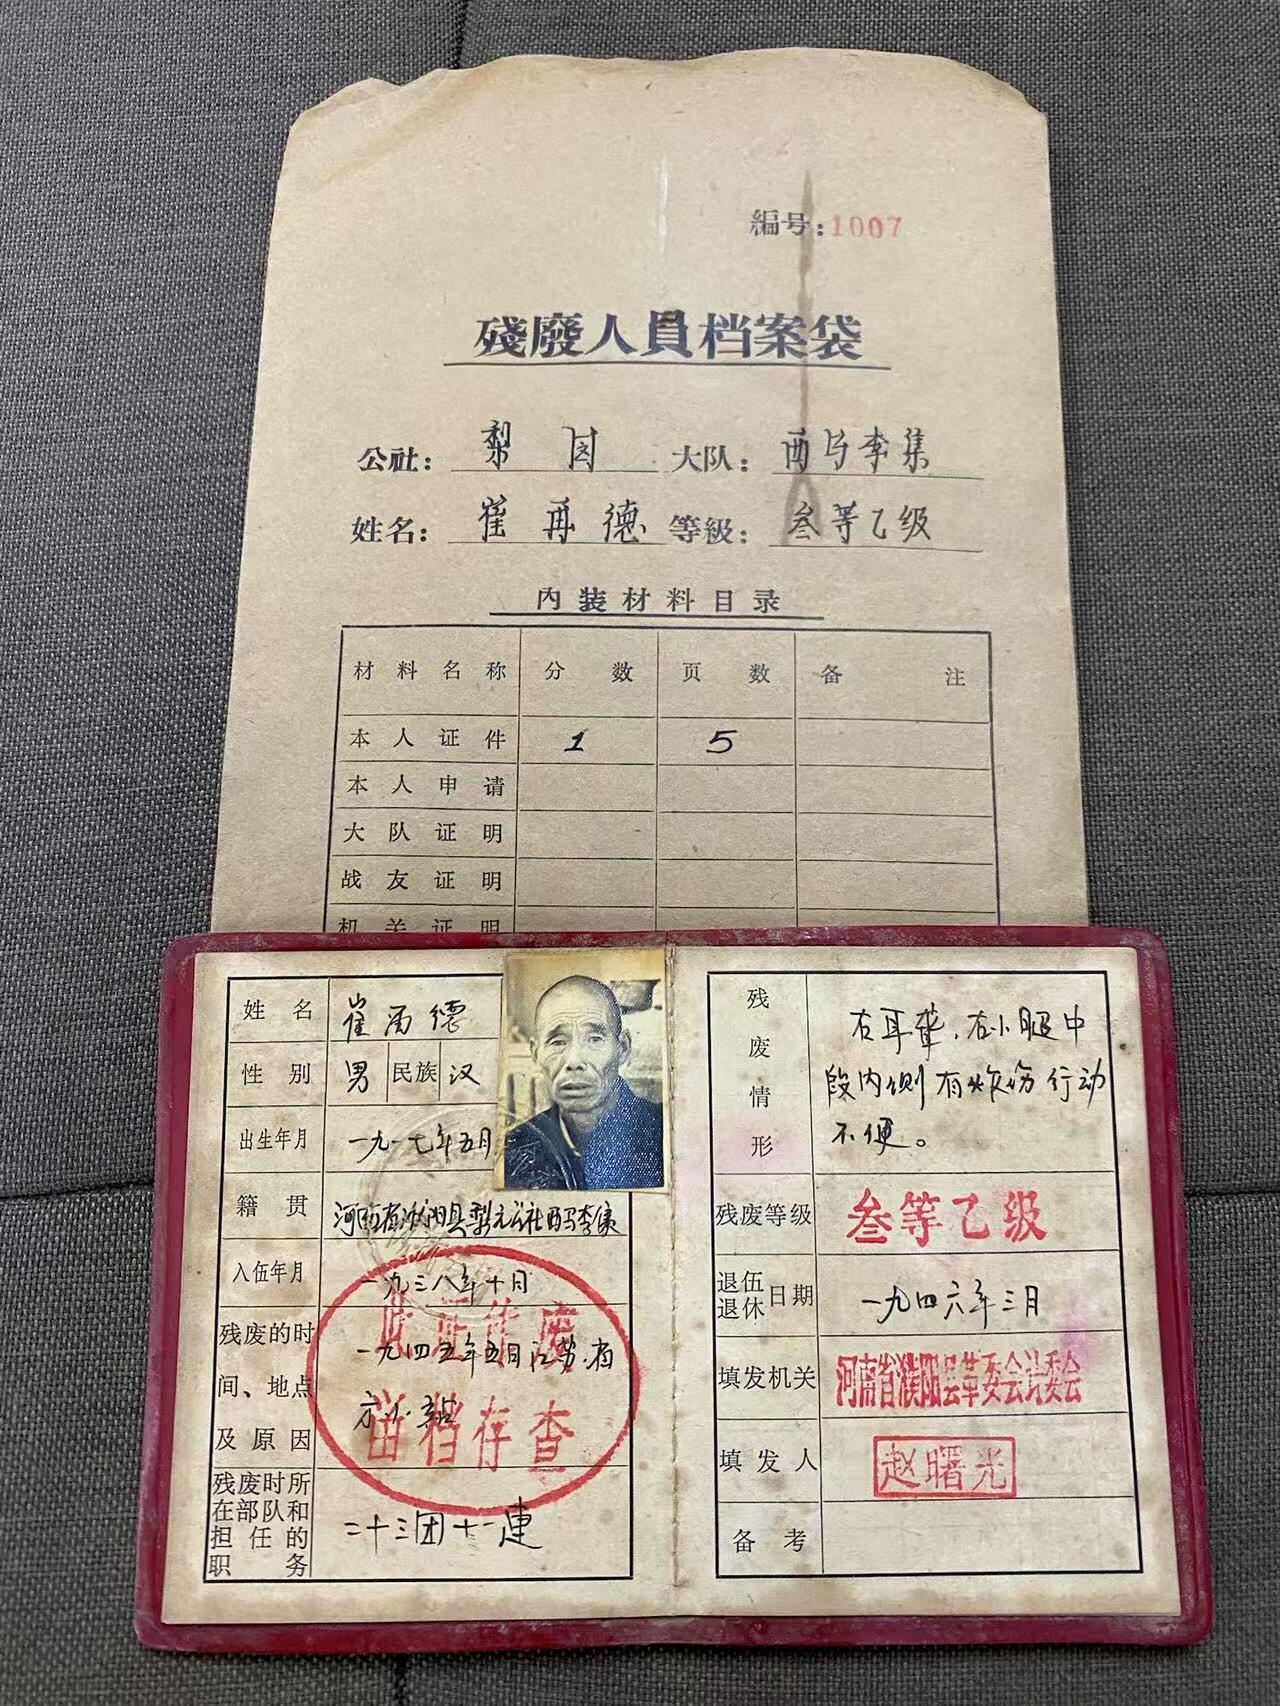 編号:1007
殘廢人員档案袋
公社: 梨园 大队: 西马李集
姓名: 崔再德 等級: 叁等乙级
内装材料目录
材料名称 分数 页数 备注
本人证件 1 5
本人申请
大队证明
战友证明
机关证明
姓名 崔再德
性别 男 民族 汉
出生年月 一九一七年五月
籍贯 河南省濮阳县梨元公社西马李集
入伍年月 一九三八年十月
残废的时间、地点及原因 一九四五年五月江苏省
残废时所在部队和担任的职务 二十三团十一連
此证作废
留档存查
残废情形 右耳聋,右小腿中
段内侧有炸伤行动
不便。
残废等级 叁等乙级
退伍退休日期 一九四六年三月
填发机关 河南省濮阳县革委会计委会
填发人 赵曙光
备考